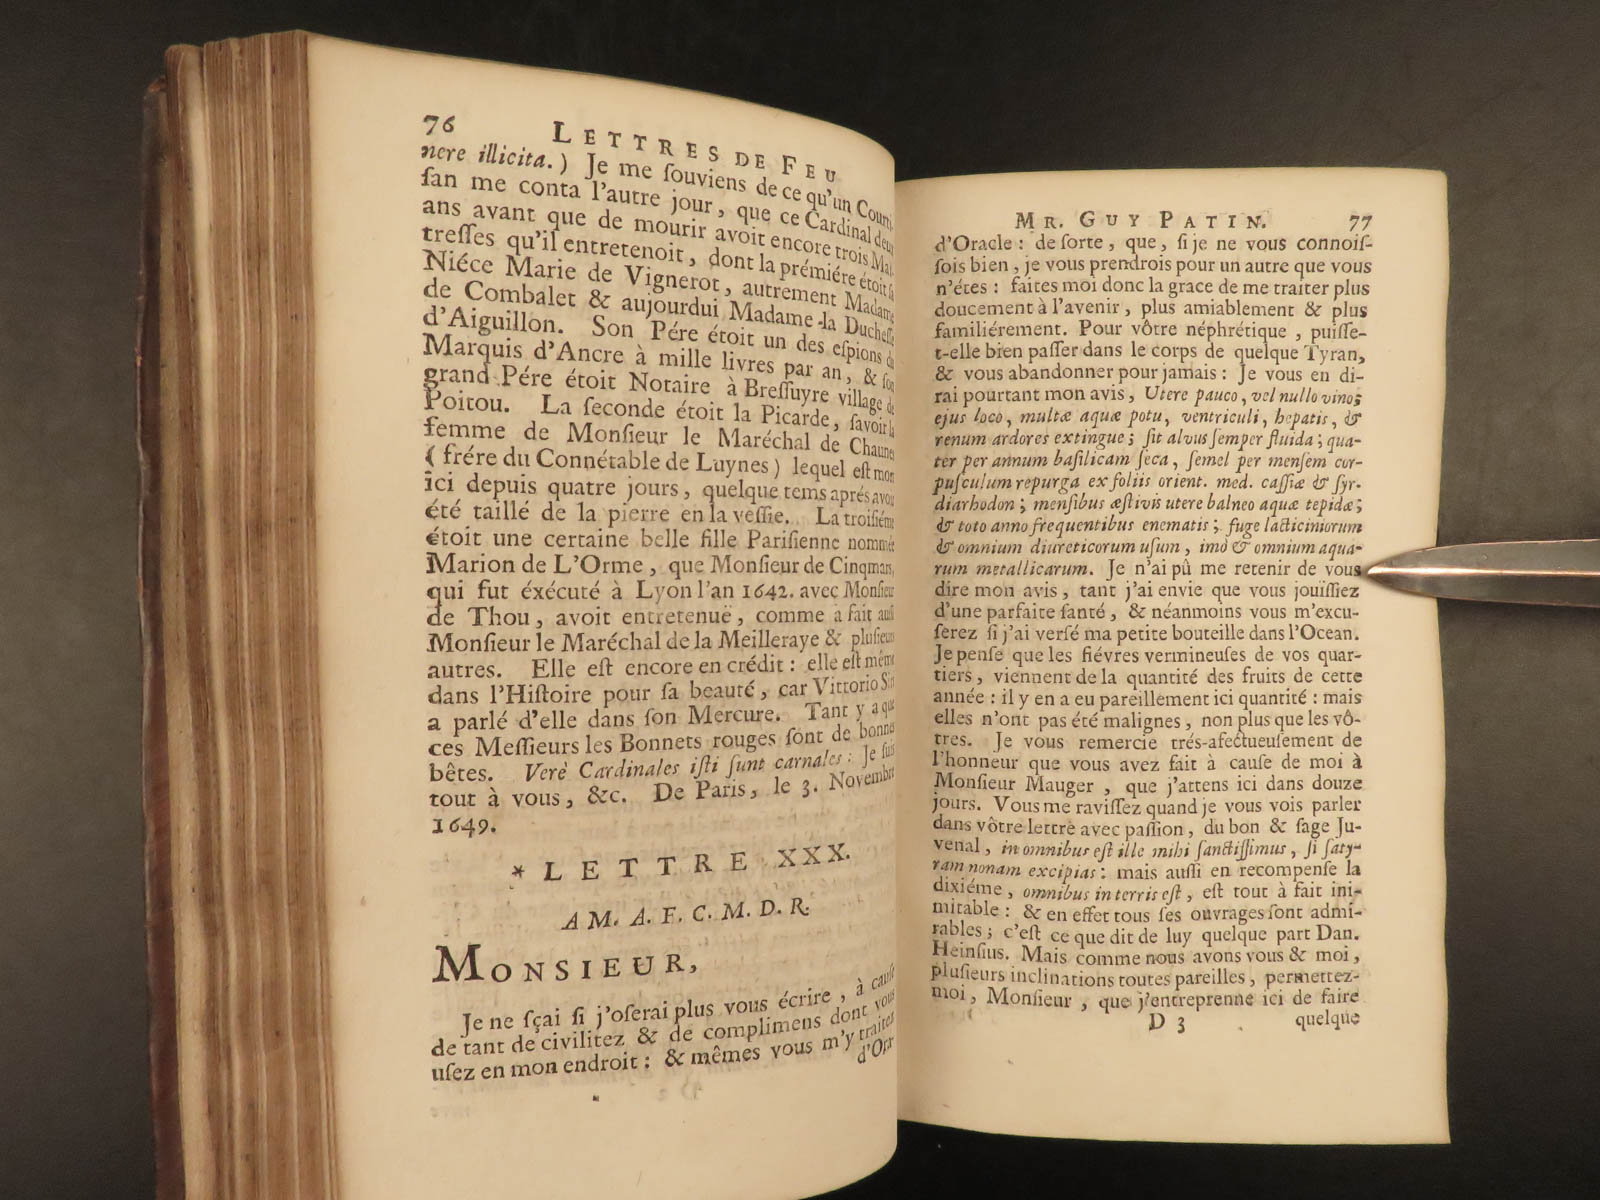 76 LETTRES DE FEU
nere illicita.) Je me ſouviens de ce qu'un Courti-
ſan me conta l'autre jour, que ce Cardinal deux
ans avant que de mourir avoit encore trois Maî-
treſſes qu'il entretenoit, dont la prémiére étoit ſa
Niéce Marie de Vignerot, autrement Madame
de Combalet & aujourdui Madame la Ducheſſe
d'Aiguillon. Son Pére étoit un des eſpions du
Marquis d'Ancre à mille livres par an, & ſon
grand Pére étoit Notaire à Breſſuyre village de
Poitou. La ſeconde étoit la Picarde, ſavoir la
femme de Monſieur le Maréchal de Chaunes
(frére du Connétable de Luynes) lequel eſt mort
ici depuis quatre jours, quelque tems aprés avoir
été taillé de la pierre en la veſſie. La troiſiéme
étoit une certaine belle fille Pariſienne nommée
Marion de L'Orme, que Monſieur de Cinqmars,
qui fut éxécuté à Lyon l'an 1642. avec Monſieur
de Thou, avoit entretenuë, comme a fait auſſi
Monſieur le Maréchal de la Meilleraye & pluſieurs
autres. Elle eſt encore en crédit: elle eſt même
dans l'Hiſtoire pour ſa beauté, car Vittorio Siri
a parlé d'elle dans ſon Mercure. Tant y a que
ces Meſſieurs les Bonnets rouges ſont de bonnes
bêtes. Verè Cardinales iſti ſunt carnales: Je ſuis
tout à vous, &c. De Paris, le 3. Novembre
1649.
* LETTRE XXX.
A M. A. F. C. M. D. R.
MONSIEUR,
Je ne ſçai ſi j'oſerai plus vous écrire, à cauſe
de tant de civilitez & de complimens dont vous
uſez en mon endroit: & mêmes vous m'y traitez
d'Ora-
MR. GUY PATIN. 77
d'Oracle: de ſorte, que, ſi je ne vous connoiſ-
ſois bien, je vous prendrois pour un autre que vous
n'étes: faites moi donc la grace de me traiter plus
doucement à l'avenir, plus amiablement & plus
familiérement. Pour vôtre néphrétique, puiſſe-
t-elle bien paſſer dans le corps de quelque Tyran,
& vous abandonner pour jamais: Je vous en di-
rai pourtant mon avis, Utere pauco, vel nullo vino;
ejus loco, multæ aquæ potu, ventriculi, hepatis, &
renum ardores extingue; ſit alvus ſemper fluida; qua-
ter per annum baſilicam ſeca, ſemel per menſem cor-
puſculum repurga ex foliis orient. med. caſſiæ & ſyr.
diarhodon; menſibus æſtivis utere balneo aquæ tepidæ;
& toto anno frequentibus enematis; fuge lacticiniorum
& omnium diureticorum uſum, imò & omnium aqua-
rum metallicarum. Je n'ai pû me retenir de vous
dire mon avis, tant j'ai envie que vous jouïſſiez
d'une parfaite ſanté, & néanmoins vous m'excu-
ſerez ſi j'ai verſé ma petite bouteille dans l'Ocean.
Je penſe que les fiévres vermineuſes de vos quar-
tiers, viennent de la quantité des fruits de cette
année: il y en a eu pareillement ici quantité: mais
elles n'ont pas été malignes, non plus que les vô-
tres. Je vous remercie trés-afectueuſement de
l'honneur que vous avez fait à cauſe de moi à
Monſieur Mauger, que j'attens ici dans douze
jours. Vous me raviſſez quand je vous vois parler
dans vôtre lettre avec paſſion, du bon & ſage Ju-
venal, in omnibus eſt ille mihi ſanctiſſimus, ſi ſaty-
ram nonam excipias: mais auſſi en recompenſe la
dixiéme, omnibus in terris eſt, eſt tout à fait ini-
mitable: & en effet tous ſes ouvrages ſont admi-
rables; c'eſt ce que dit de luy quelque part Dan.
Heinſius. Mais comme nous avons vous & moi,
pluſieurs inclinations toutes pareilles, permettez-
moi, Monſieur, que j'entreprenne ici de faire
D 3 quelque